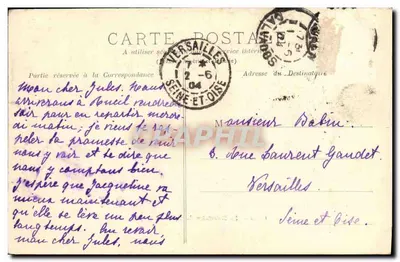 CARTE POSTALE
Partie réservée à la Correspondance
Adresse du Destinataire
VERSAILLES
2-6
04
SEINE-ET-OISE
Mon cher Jules, Nous
arriverons à Rueil vendredi
soir pour en repartir mercre
di matin; je viens te rap
peler ta promesse de venir
nous y voir et te dire que
nous y comptons bien.
J'espère que Jacqueline va
mieux maintenant et
qu'elle se lève un peu plus
longtemps. Au revoir
mon cher Jules, nous
Monsieur Babin
3, Rue Laurent Gaudet
Versailles
Seine et Oise